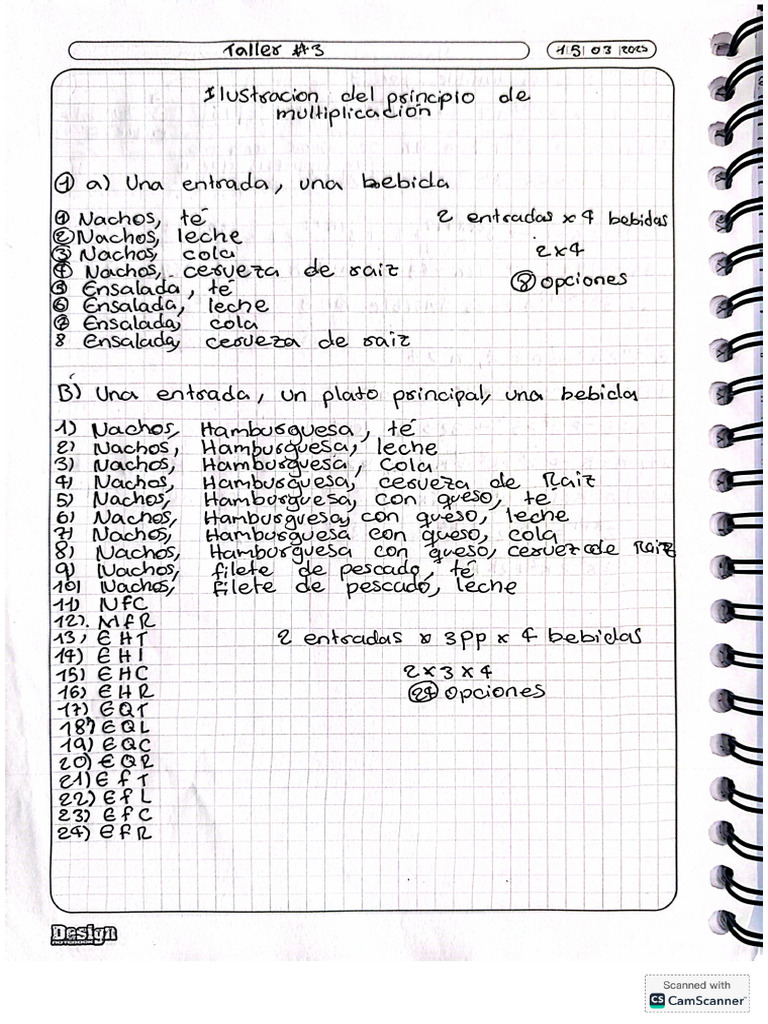 Taller #3
15 03 2025
Ilustracion del principio de
multiplicación
① a) Una entrada, una bebida
① Nachos, té
② Nachos, leche
③ Nachos, cola
④ Nachos, cerveza de raiz
⑤ Ensalada, té
⑥ Ensalada, leche
⑦ Ensalada, cola
8 Ensalada, cerveza de raiz
2 entradas x 4 bebidas
2x4
⑧ opciones
B) Una entrada, un plato principal, una bebida
1) Nachos, Hamburguesa, té
2) Nachos, Hamburguesa, leche
3) Nachos, Hamburguesa, cola
4) Nachos, Hamburguesa, cerveza de Raiz
5) Nachos, Hamburguesa, con queso, té
6) Nachos, Hamburguesa, con queso, leche
7) Nachos, Hamburguesa con queso, cola
8) Nachos, Hamburguesa con queso, cervez de Raiz
9) Nachos, filete de pescado, té
10) Nachos, filete de pescado, leche
11) NfC
12). NfR
13) EHT
14) EHI
15) EHC
16) EHR
17) EQT
18) EQL
19) EQC
20) EQR
21) EfT
22) EfL
23) EfC
24) EfR
2 entradas x 3pp x 4 bebidas
2x3x4
24 opciones
Design
Scanned with
CS CamScanner